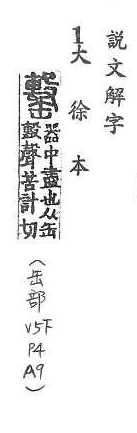 説文解字
1大徐本
罊
器中盡也从缶
毄聲苦計切
(缶部 V5下 P4 A9)